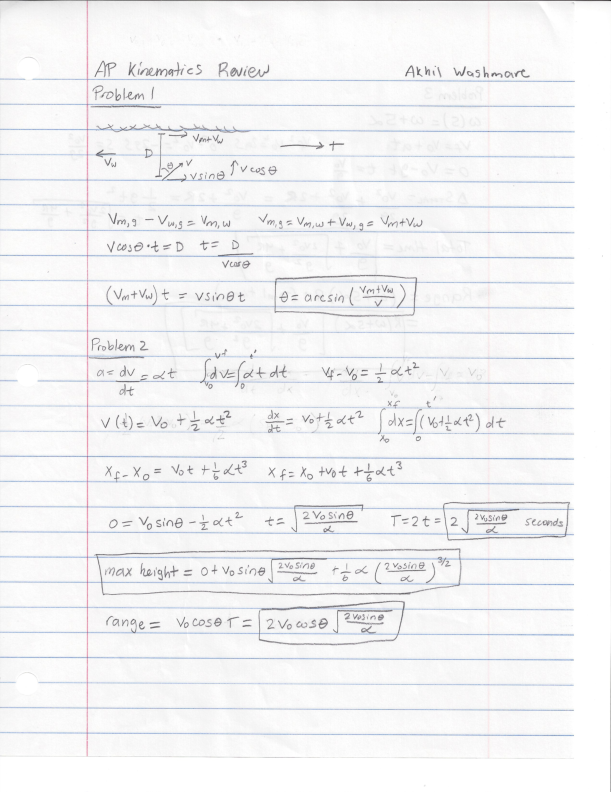 AP Kinematics Review Akhil Washmare
Problem 1
Vm+Vw
Vw D θ V Vcosθ +
Vsinθ
Vm,g - Vw,g = Vm,w Vm,g = Vm,w + Vw,g = Vm+Vw
Vcosθ·t = D t = D/Vcosθ
(Vm+Vw)t = Vsinθt θ = arcsin(Vm+Vw/V)
Problem 2
a = dv/dt = αt ∫v₀^vf dv = ∫₀^t' αt dt Vf - V₀ = ½αt²
V(t) = V₀ + ½αt² dx/dt = V₀ + ½αt² ∫x₀^xf dx = ∫₀^t' (V₀ + ½αt²) dt
Xf - X₀ = V₀t + ⅙αt³ Xf = X₀ + V₀t + ⅙αt³
0 = V₀sinθ - ½αt² t = √(2V₀sinθ/α) T = 2t = 2√(2V₀sinθ/α) seconds
max height = 0 + V₀sinθ√(2V₀sinθ/α) + ⅙α(2V₀sinθ/α)^3/2
range = V₀cosθT = 2V₀cosθ√(2V₀sinθ/α)